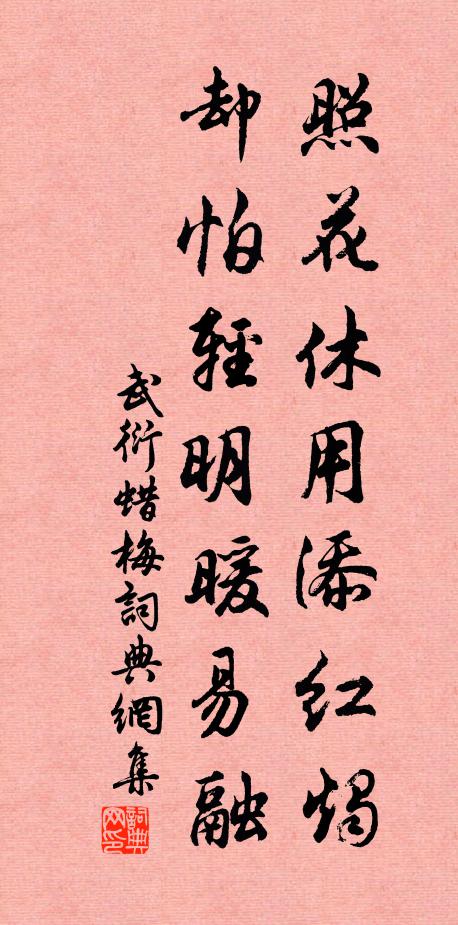 照花休用添红烛
却怕轻明暖易融
武衍蜡梅詞典網集
詞典网印